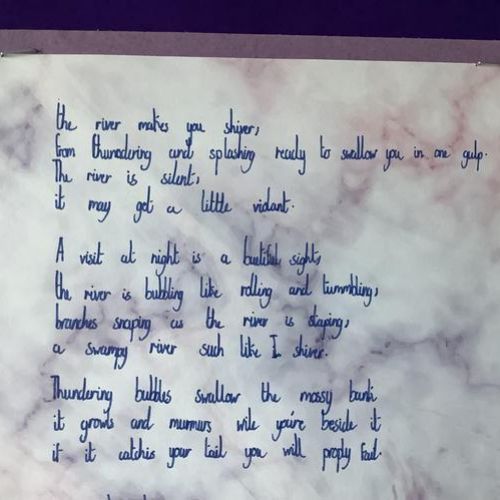 the river makes you shiver,
from thunadering and splashing ready to swallow you in one gulp.
The river is silent,
it may get a little vidant.
A visit at night is a buetiful sight,
the river is bubbling like rolling and tummbling,
branches snaping as the river is staping,
a swampy river such like I shiver.
Thundering bubbles swallow the mossy bank
it growls and murmurs wile you're beside it
if it catchis your tail you will proply fail.